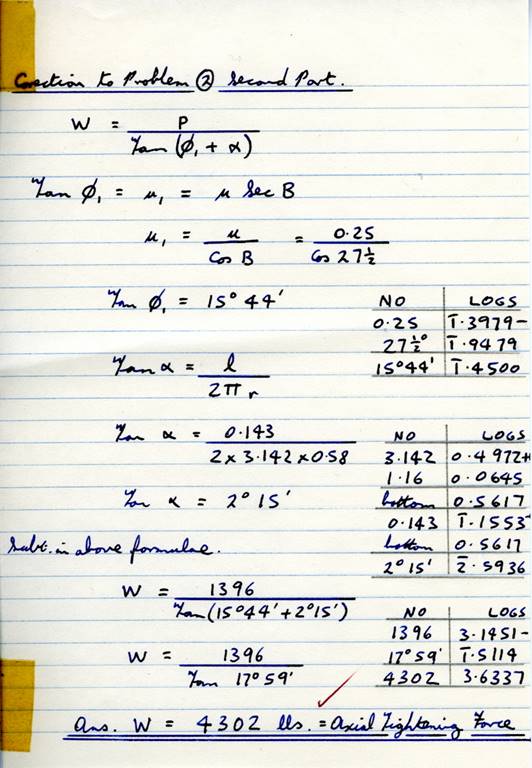 Corection to Problem ② Second Part.
W = P / Tan (φ₁ + α)
Tan φ₁ = μ₁ = μ Sec B
μ₁ = μ / Cos B = 0.25 / Cos 27½
Tan φ₁ = 15° 44'
NO LOGS
0.25 1̄.3979-
27½° 1̄.9479
15°44' 1̄.4500
Tan α = l / 2π r
Tan α = 0.143 / 2 x 3.142 x 0.58
Tan α = 2° 15'
NO LOGS
3.142 0.4972+
1.16 0.0645
bottom 0.5617
0.143 1̄.1553-
bottom 0.5617
2° 15' 2̄.5936
Subt. in above formulae.
W = 1396 / Tan (15°44' + 2°15')
W = 1396 / Tan 17°59'
NO LOGS
1396 3.1451-
17°59' 1̄.5114
4302 3.6337
Ans. W = 4302 lbs. = Axial Tightening Force